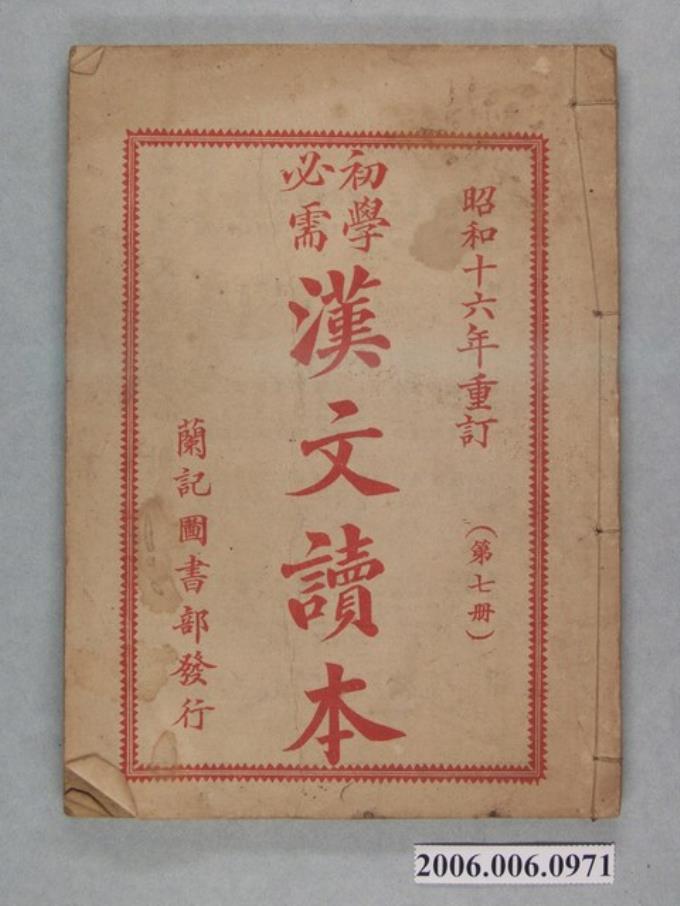 昭和十六年重訂
（第七冊）
初學
必需
漢文讀本
蘭記圖書部發行
2006.006.0971